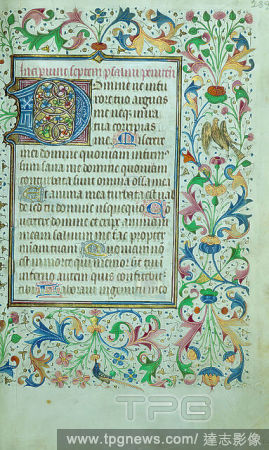 289
Incipiunt septem psalmi peniten
Domine ne in fu
rore tuo arguas
me neq in ira
tua corripias
me Miserere
mei domine quoniam infirm
sana me domine quoniam
conturbata sunt omnia ossa mea
Et anima mea turbata est val
de sed tu domine usquequo
domine et eripe animam
meam saluum me fac propter
tuam Quoniam no
est in morte qui memor sit tui
inferno autem quis confitebit
laboraui in gemitu meo
TPG
www.tpgnews.com/ 達志影像